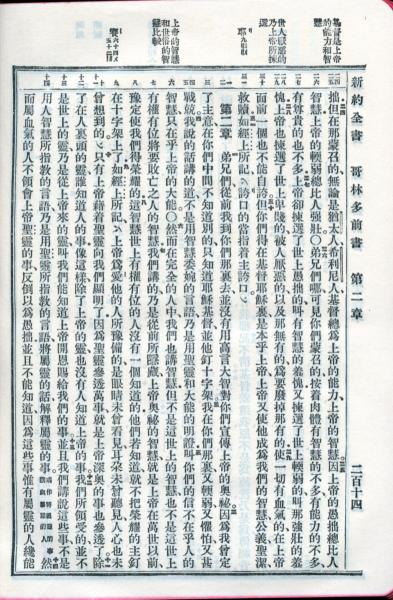 新約全書 哥林多前書 第二章 二百十四
基督是上帝的能力和智慧
世人厭惡的乃上帝所揀選
上帝的智慧和世俗的智慧比較
拙但在那蒙召的無論是猶太人希利尼人基督總為上帝的能力上帝的智慧因上帝的愚拙總比人
智慧上帝的輭弱總比人強壯〇弟兄們哪可見你們蒙召的按着肉體有智慧的不多有能力的不多
有尊貴的也不多上帝卻揀選了世上愚拙的叫有智慧的羞愧又揀選了世上輭弱的叫那強壯的羞
愧上帝也揀選了世上卑賤的被人厭惡的以及那無有的為要廢掉那有的使一切有血氣的在上帝
面前一個也不能自誇但你們得在基督耶穌裏是本乎上帝上帝又使他成為我們的智慧公義聖潔
救贖如經上所記誇口的當指着主誇口
第二章 弟兄們從前我到你們那裏去並沒有用高言大智對你們宣傳上帝的奧祕因為我曾定
了主意在你們中間不知道別的只知道耶穌基督並他釘十字架我在你們那裏又輭弱又懼怕又甚
戰兢我說的話講的道不是用智慧委婉的言語乃是用聖靈和大能的明證叫你們的信不在乎人的
智慧只在乎上帝的大能〇然而在完全的人中我們也講智慧但不是這世上的智慧也不是這世上
有權有位將要敗亡之人的智慧我們講的乃是從前所隱藏上帝奧祕的智慧就是上帝在萬世以前
豫定使我們得榮耀的這智慧世上有權有位的人沒有一個知道的他們若知道就不把榮耀的主釘
在十字架上了如經上所記上帝為愛他的人所豫備的是眼睛未曾看見耳朵未曾聽見人心也未
曾想到的只有上帝藉着聖靈向我們顯明了因為聖靈參透萬事就是上帝深奧的事也參透了除
了在人裏頭的靈誰知道人的事像這樣除了上帝的靈也沒有人知道上帝的事我們所領受的並不
是世上的靈乃是從上帝來的靈叫我們能知道上帝開恩賜給我們的事並且我們講說這些事不是
用人智慧所指教的言語乃是用聖靈所指教的言語將屬靈的話解釋屬靈的事
而屬血氣的人不領會上帝聖靈的事反倒以為愚拙並且不能知道因為這些事惟有屬靈的人纔能